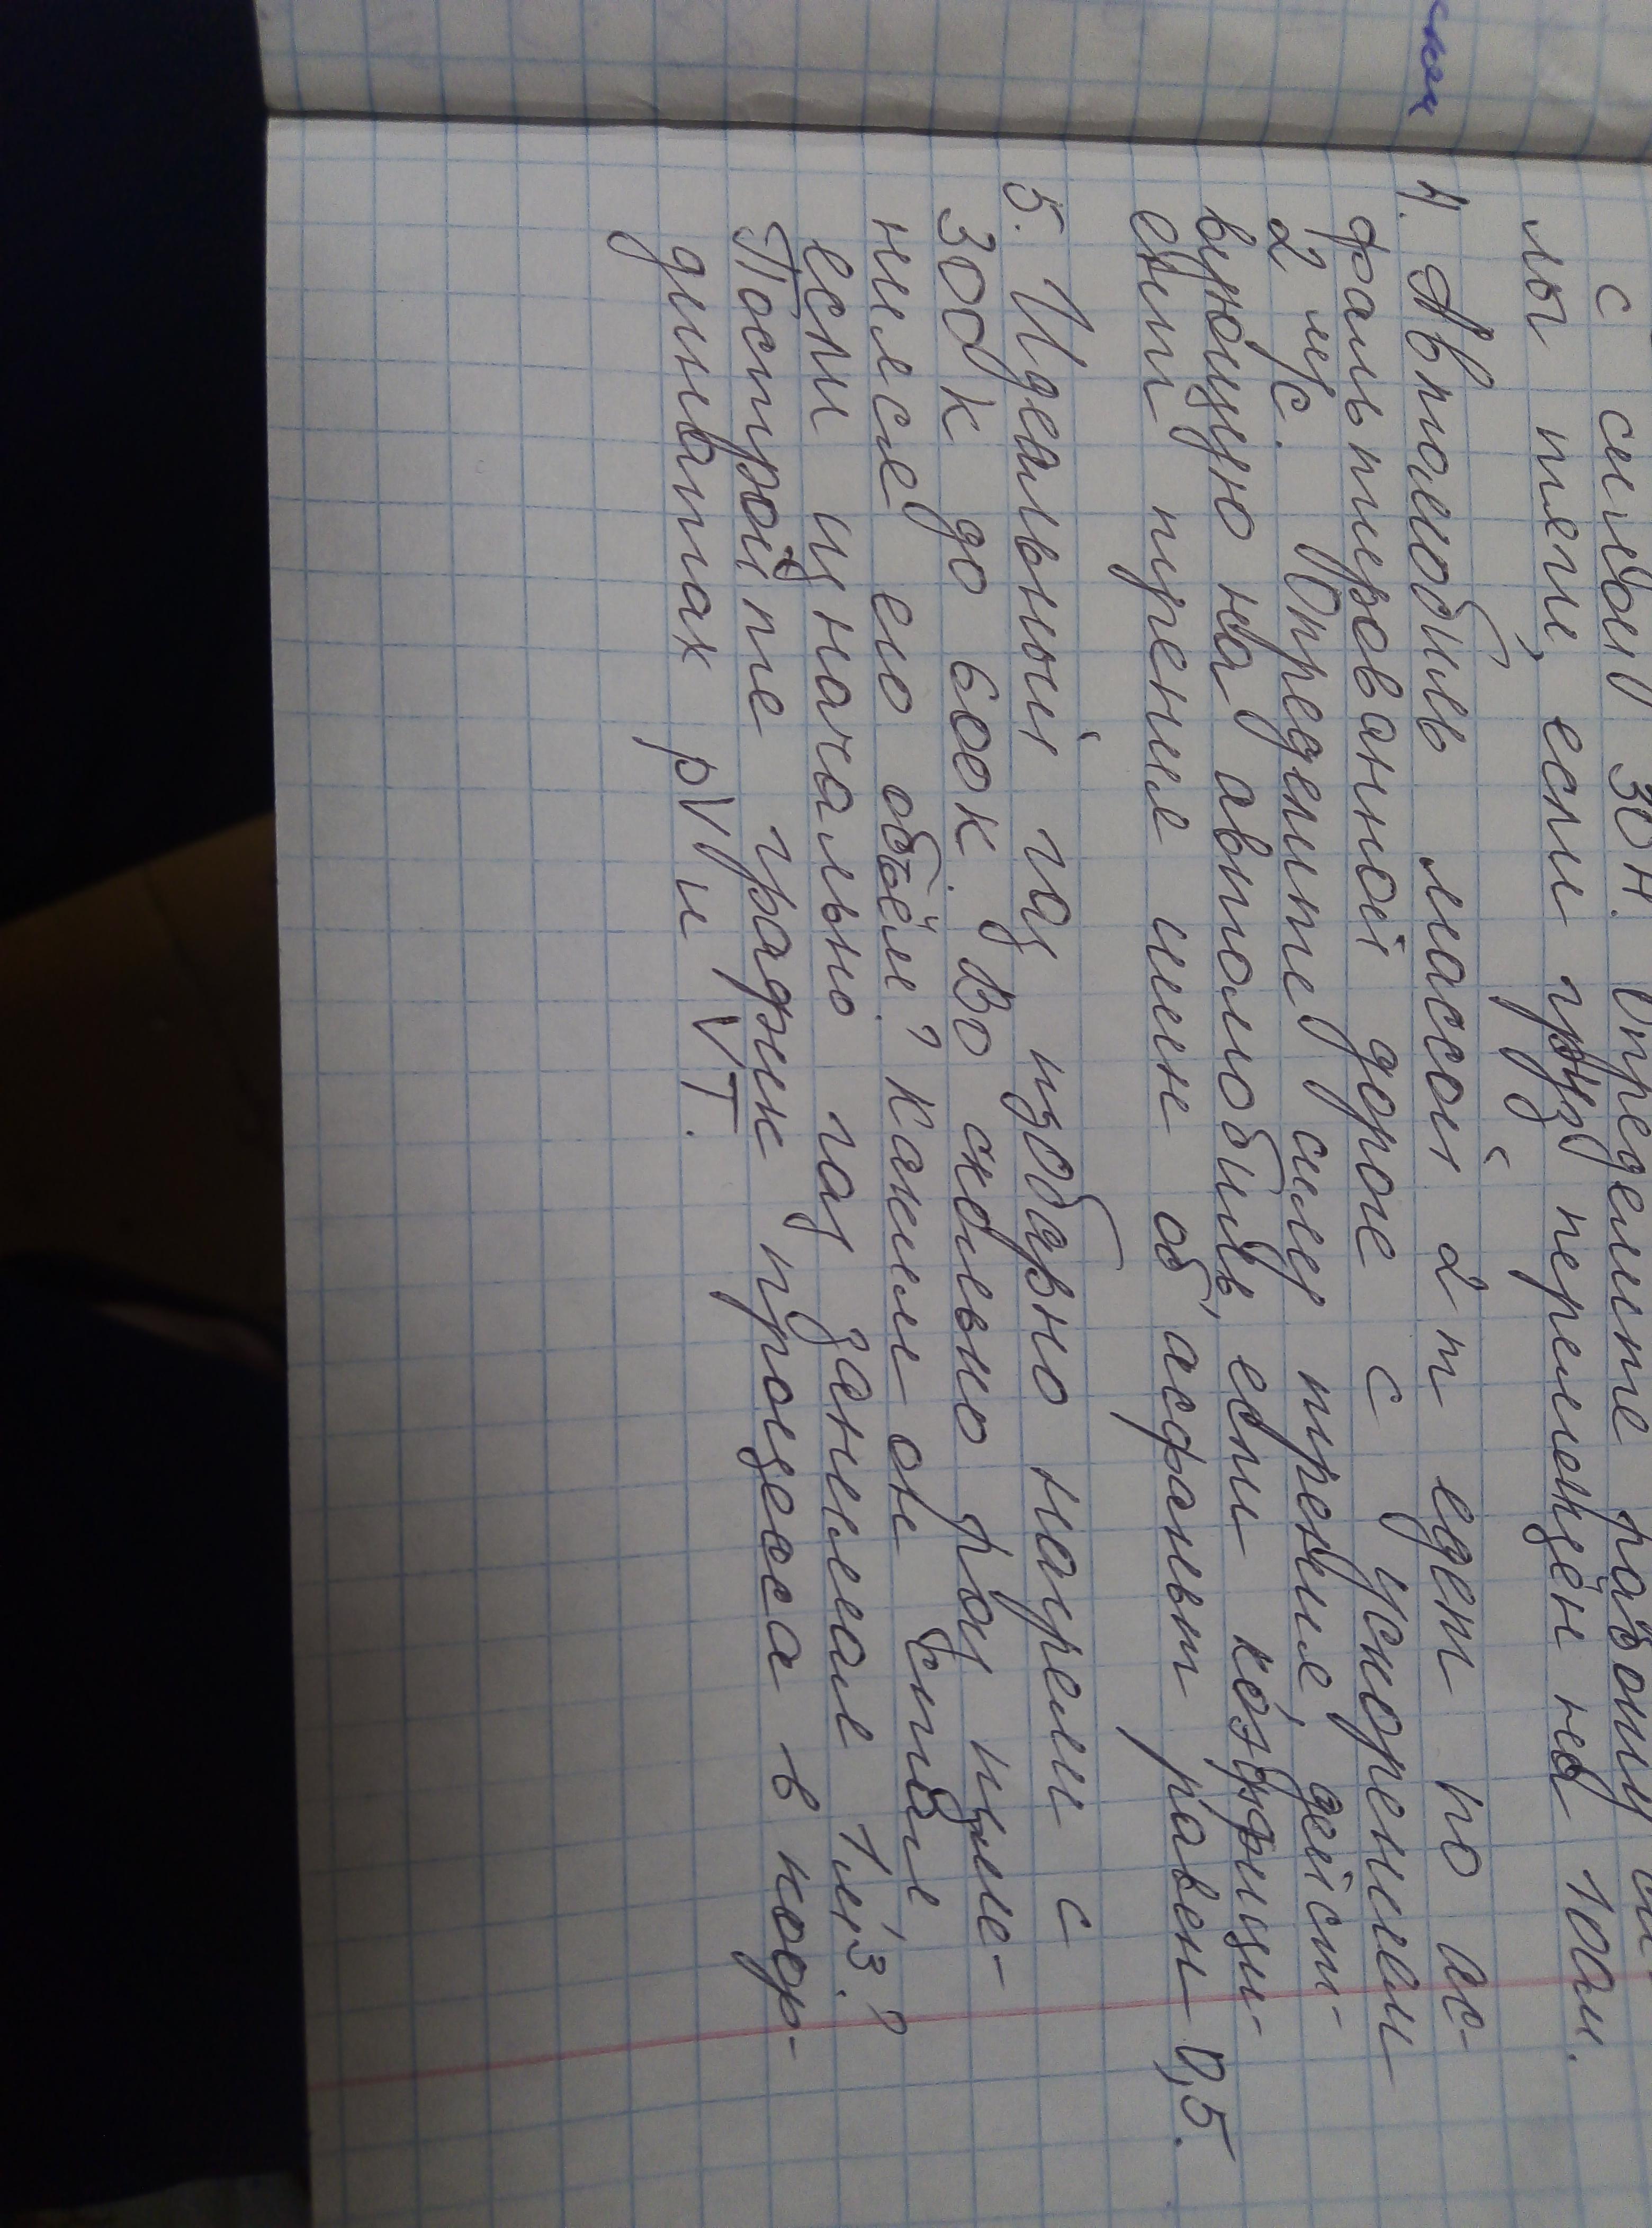 с силой 30Н. Определите работу си-
лы тяги, если груз перемещён на 10м.
4. Автомобиль массой 2 т едет по ас-
фальтированной дороге с ускорением
2 м/с. Определите силу трения, дейст-
вующую на автомобиль, если коэффици-
ент трения шин об асфальт равен 0,5.
5. Идеальный газ изобарно нагрели с
300К до 600К. Во сколько раз изме-
нился его объём? Каким он стал
если изначально газ занимал 1м3?
Постройте график процесса в коор-
динатах pV и VT.